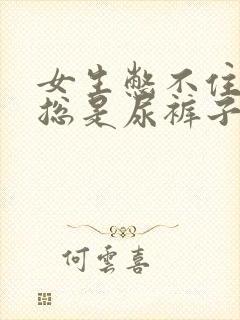 女生憋不住
总是尿裤子
何雲喜